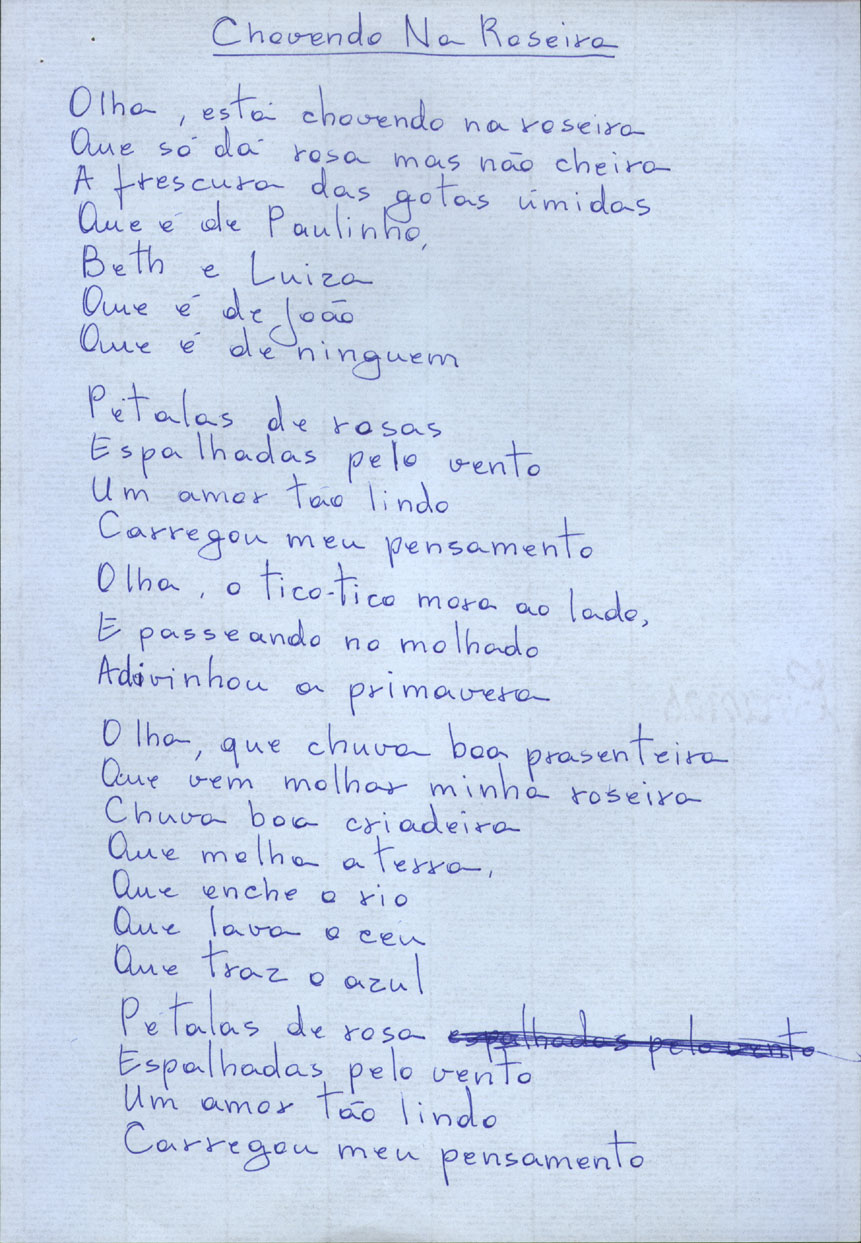 Chovendo Na Roseira
Olha, está chovendo na roseira
Que só dá rosa mas não cheira
A frescura das gotas úmidas
Que é de Paulinho,
Beth e Luiza
Que é de João
Que é de ninguem
Pétalas de rosas
Espalhadas pelo vento
Um amor tão lindo
Carregou meu pensamento
Olha, o tico-tico mora ao lado,
E passeando no molhado
Adivinhou a primavera
Olha, que chuva boa prasenteira
Que vem molhar minha roseira
Chuva boa criadeira
Que molha a terra,
Que enche o rio
Que lava o céu
Que traz o azul
Pétalas de rosa espalhadas pelo vento
Espalhadas pelo vento
Um amor tão lindo
Carregou meu pensamento